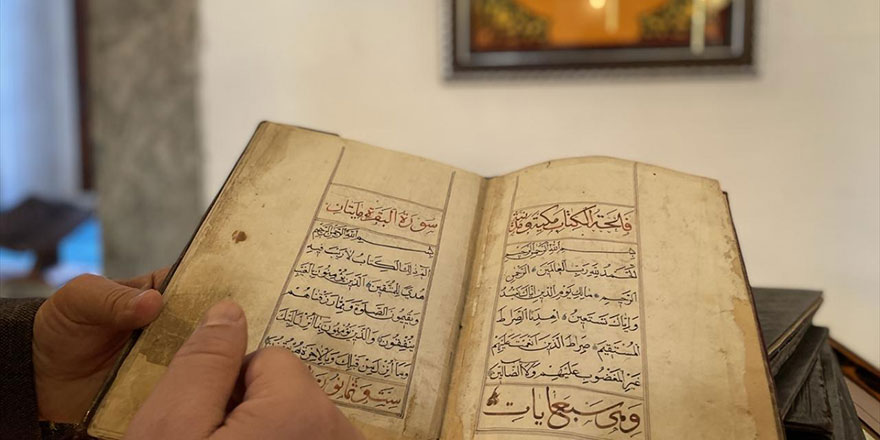 فاتحة الكتاب مكية
بسم الله الرحمن الرحيم
الحمد لله رب العالمين الرحمن
الرحيم مالك يوم الدين اياك نعبد
واياك نستعين اهدنا الصراط
المستقيم صراط الذين انعمت عليهم
غير المغضوب عليهم ولا الضالين
وهي سبع ايات
سورة البقرة مايتان
بسم الله الرحمن الرحيم
الم ذلك الكتاب لا ريب فيه
هدى للمتقين الذين يؤمنون بالغيب
ويقيمون الصلوة ومما رزقناهم
ينفقون والذين يؤمنون بما انزل اليك
وما انزل من قبلك وبالاخرة هم يوقنون
ست وثمانون